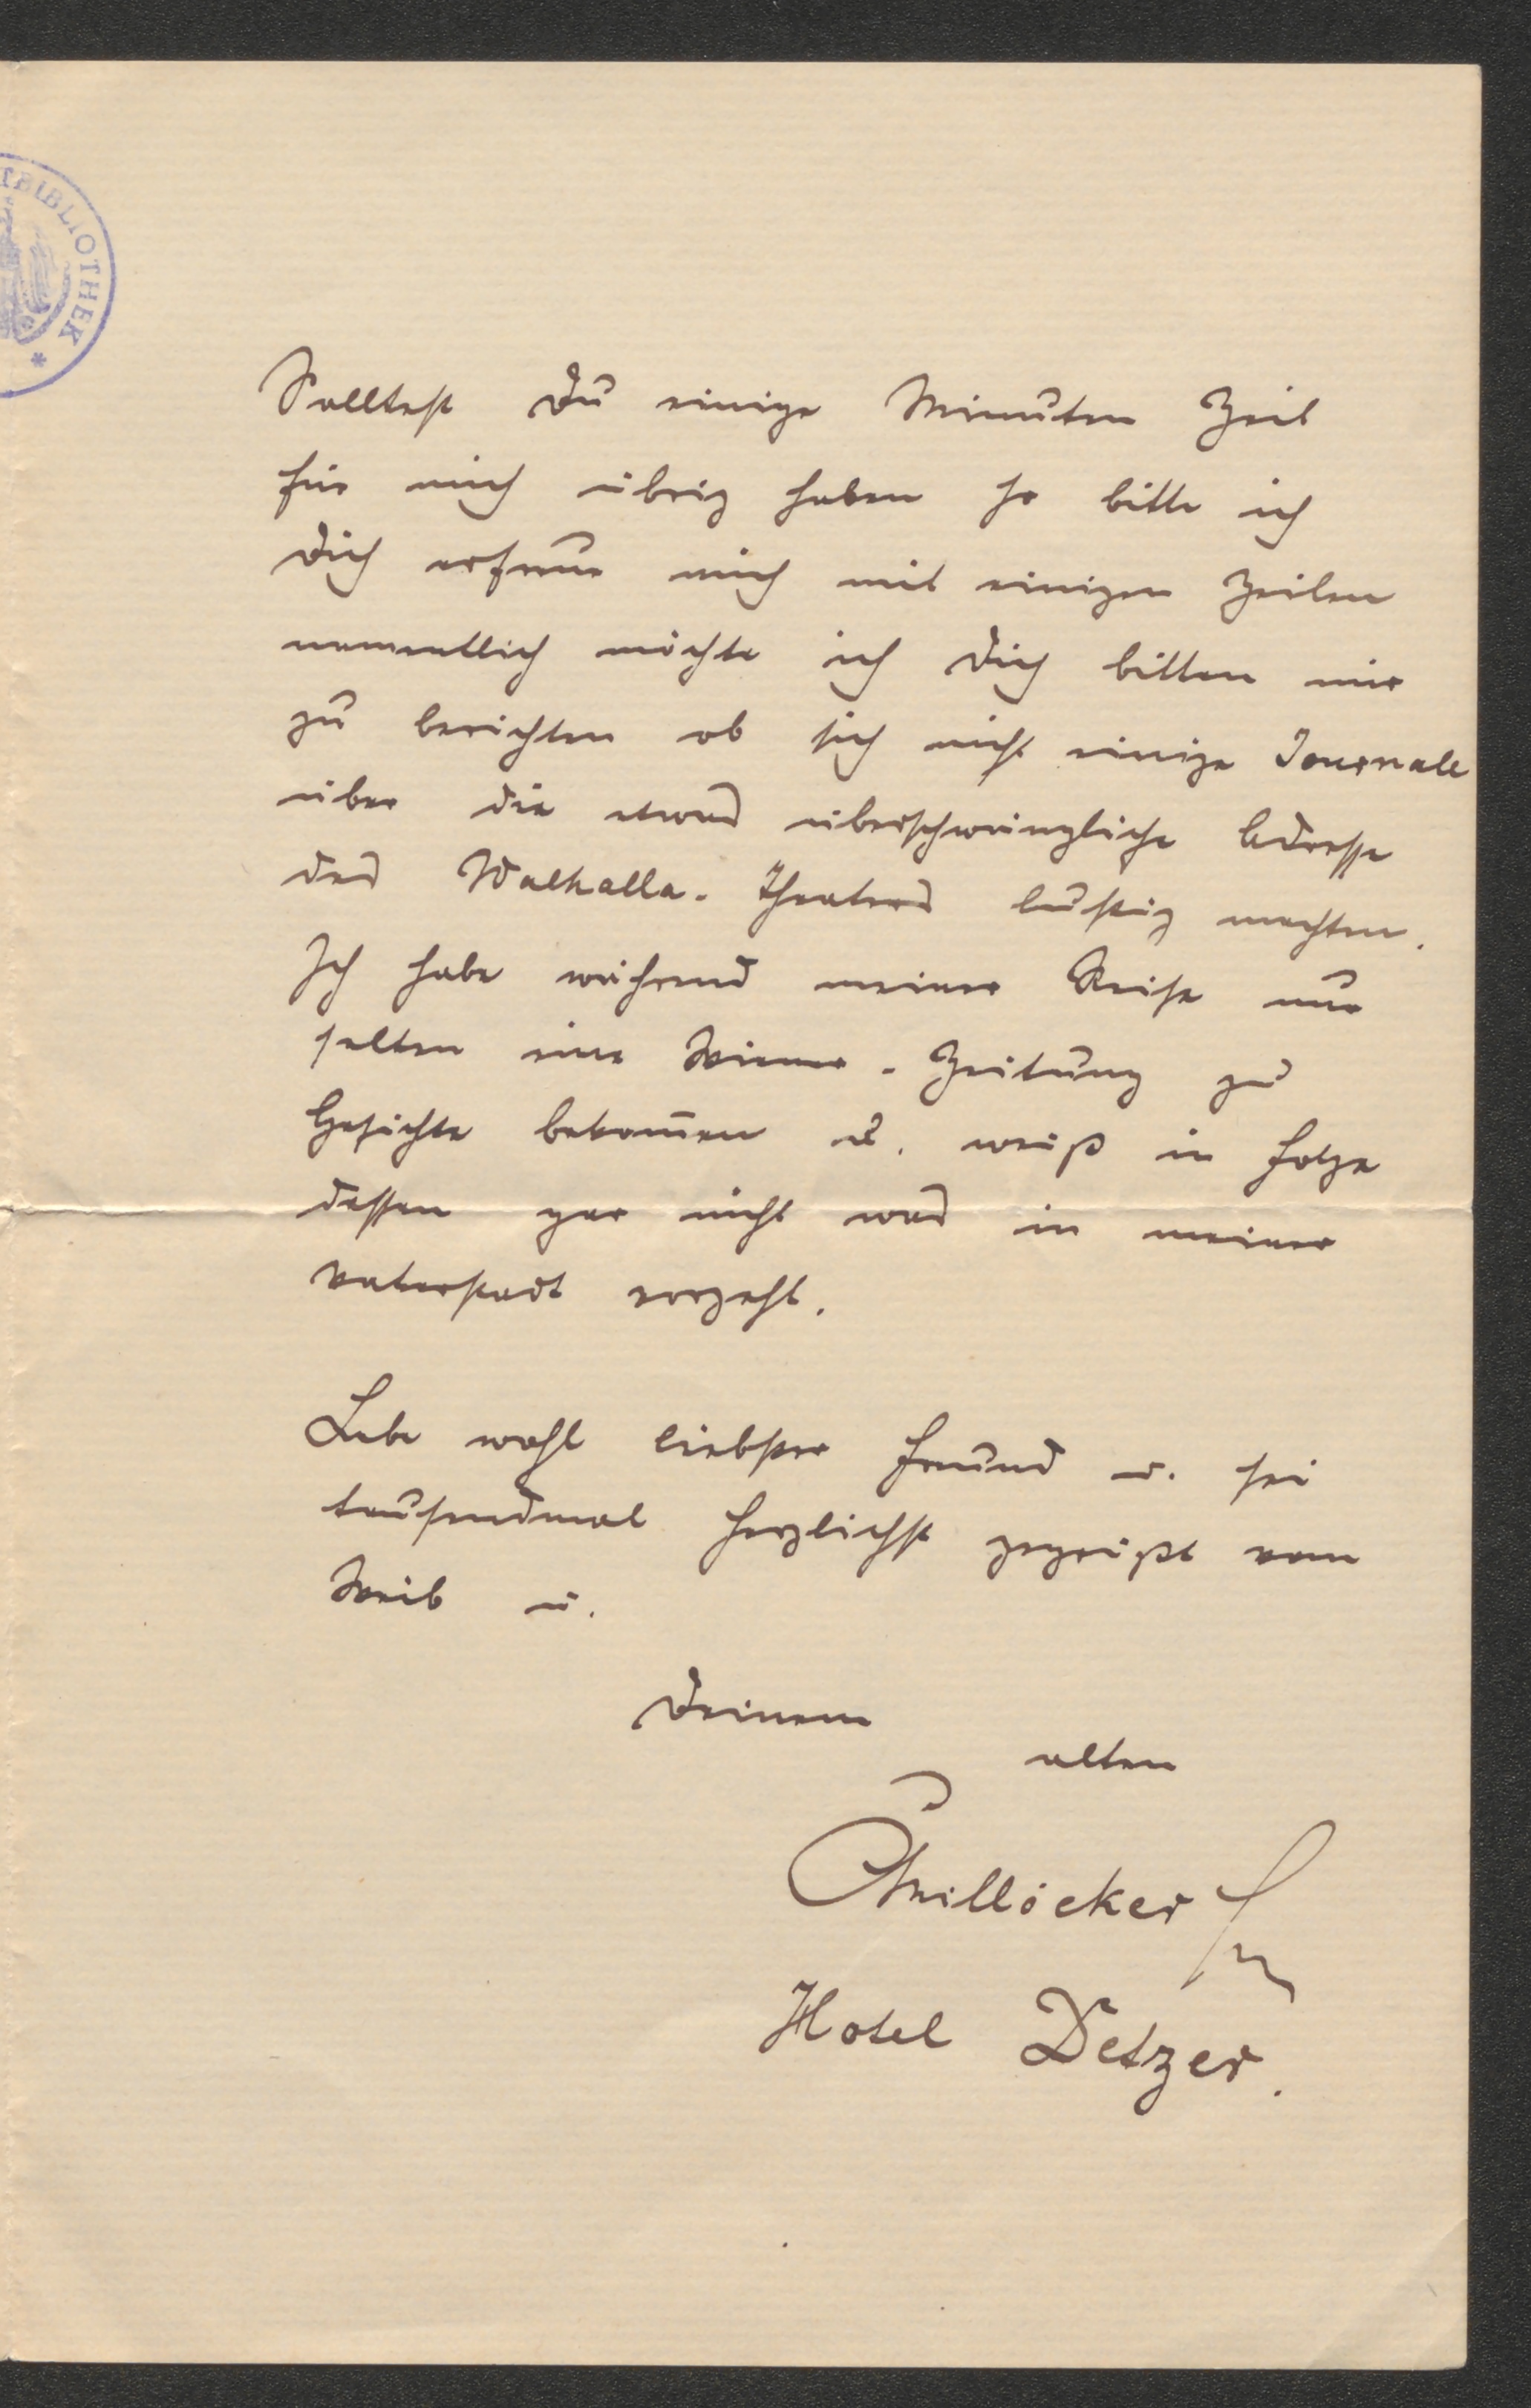 TBIBLIOTHEK *
Solltest Du einige Minuten Zeit
für mich übrig haben so bitte ich
Dich erfreue mich mit einigen Zeilen
namentlich möchte ich Dich bitten mir
zu berichten ob sich nicht einige Journale
über die etwas überschwängliche Adresse
des Walhalla-Theaters lustig machten.
Ich habe während meiner Reise nur
selten eine Wiener-Zeitung zu
Gesichte bekom̄en u. weiß in Folge
dessen gar nicht was in meiner
Vaterstadt vorgeht.
Lebe wohl liebster Freund u. sei
tausendmal herzlichst gegrüßt vom
Weib u.
Deinem
alten
CMillöcker
Hotel Detzer.